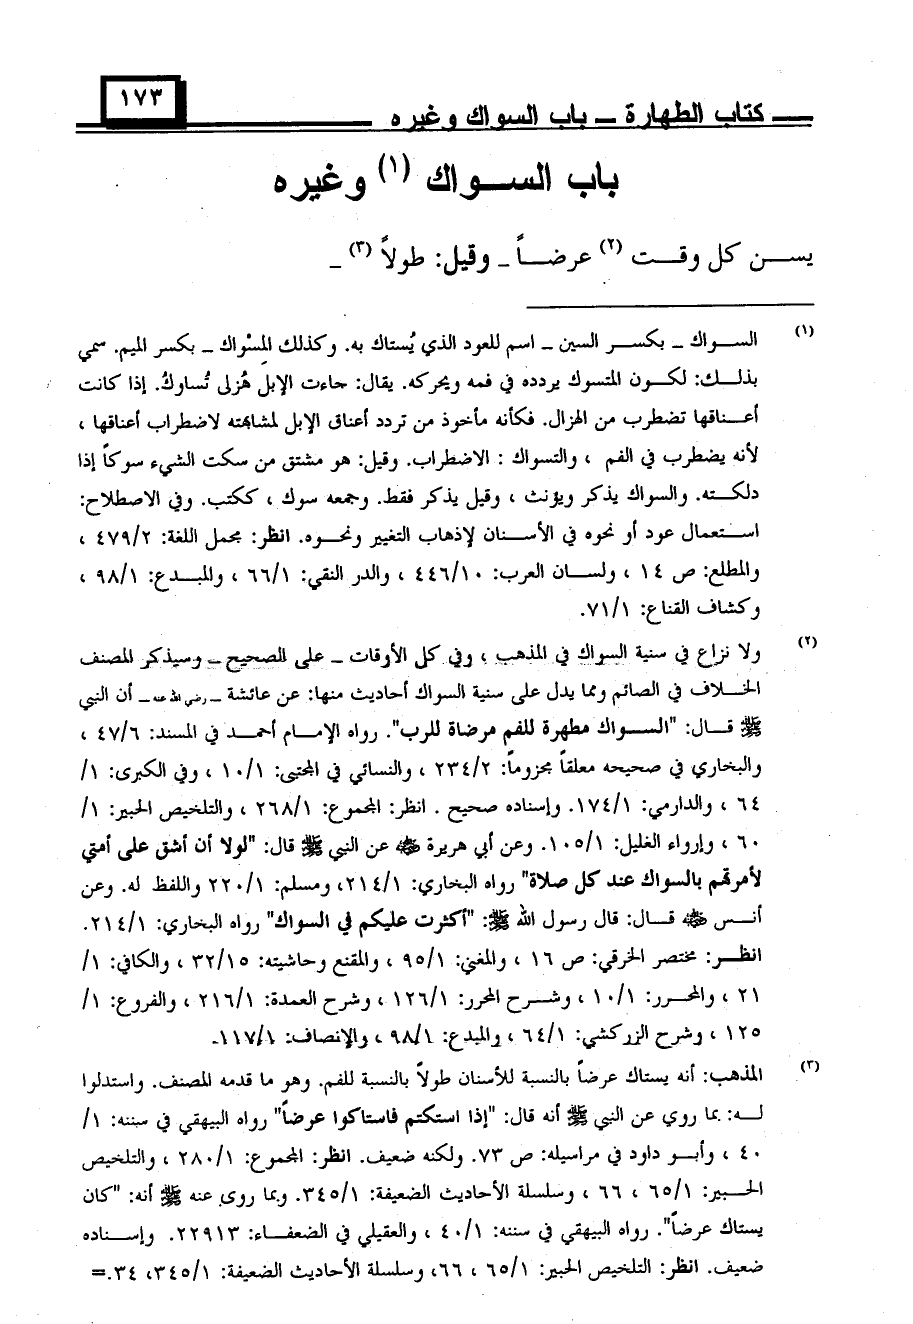 ١٧٣
كتاب الطهارة ــ باب السواك وغيره
باب الســواك (١) وغيره
يســن كل وقــت (٢) عرضــاً ــ وقيل: طولاً (٣) ــ
(١) الســواك ــ بكســر السين ــ اسم للعود الذي يُستاك به. وكذلك المِسْواك ــ بكسر الميم. سمي
بذلــك: لكــون المتسوك يردده في فمه ويحركه. يقال: جاءت الإبل هُزلى تُساوكُ. إذا كانت
أعــناقها تضطرب من الهزال. فكأنه مأخوذ من تردد أعناق الإبل لمشابهته لاضطراب أعناقها ،
لأنه يضطرب في الفم ، والتسواك : الاضطراب. وقيل: هو مشتق من سكت الشيء سوكاً إذا
دلكــته. والسواك يذكر ويؤنث ، وقيل يذكر فقط. وجمعه سوك ، ككتب. وفي الاصطلاح:
اســتعمال عود أو نحوه في الأســنان لإذهاب التغيير ونحــوه. انظر: مجمل اللغة: ٤٧٩/٢ ،
والمطلع: ص ١٤ ، ولســان العرب: ٤٤٦/١٠ ، والدر النقي: ٦٦/١ ، والمبــدع: ٩٨/١ ،
وكشاف القناع: ٧١/١.
(٢) ولا نزاع في سنية السواك في المذهب ، وفي كل الأوقات ــ على الصحيح ــ وسيذكر المصنف
الخــلاف في الصائم ومما يدل على سنية السواك أحاديث منها: عن عائشة ــ رضي الله عنه ــ أن النبي
ﷺ قــال: "الســواك مطهرة للفم مرضاة للرب". رواه الإمــام أحمــد في المسند: ٤٧/٦ ،
والبخاري في صحيحه معلقاً مجزوماً: ٢٣٤/٢ ، والنسائي في المجتبى: ١٠/١ ، وفي الكبرى: ١/
٦٤ ، والدارمي: ١٧٤/١. وإسناده صحيح . انظر: المجموع: ٢٦٨/١ ، والتلخيص الحبير: ١/
٦٠ ، وإرواء الغليل: ١٠٥/١. وعن أبي هريرة ﷺ عن النبي ﷺ قال: "لولا أن أشق على أمتي
لأمرتهم بالسواك عند كل صلاة" رواه البخاري: ٢١٤/١، ومسلم: ٢٢٠/١ واللفظ له. وعن
أنــس قــال: قال رسول الله ﷺ: "أكثرت عليكم في السواك" رواه البخاري: ٢١٤/١.
انظــر: مختصر الخرقي: ص ١٦ ، والمغني: ٩٥/١ ، والمقنع وحاشيته: ٣٢/١٥ ، والكافي: ١/
٢١ ، والمحــرر: ١٠/١ ، وشــرح المحرر: ١٢٦/١ ، وشرح العمدة: ٢١٦/١ ، والفروع: ١/
١٢٥ ، وشرح الزركشي: ٦٤/١ ، والمبدع: ٩٨/١ ، والإنصاف: ١١٧/١.
(٣) المذهب: أنه يستاك عرضاً بالنسبة للأسنان طولاً بالنسبة للفم. وهو ما قدمه المصنف. واستدلوا
لــه: بما روي عن النبي ﷺ أنه قال: "إذا استكتم فاستاكوا عرضاً" رواه البيهقي في سننه: ١/
٤٠ ، وأبــو داود في مراسيله: ص ٧٣. ولكنه ضعيف. انظر: المجموع: ٢٨٠/١ ، والتلخيص
الحــبير: ٦٥/١ ، ٦٦ ، وسلسلة الأحاديث الضعيفة: ٣٤٥/١. وبما روى عنه ﷺ أنه: "كان
يستاك عرضاً". رواه البيهقي في سننه: ٤٠/١ ، والعقيلي في الضعفــاء: ٢٢٩١٣. وإســناده
ضعيف. انظر: التلخيص الحبير: ٦٥/١ ، ٦٦، وسلسلة الأحاديث الضعيفة: ٣٤٥/١، ٣٤.=